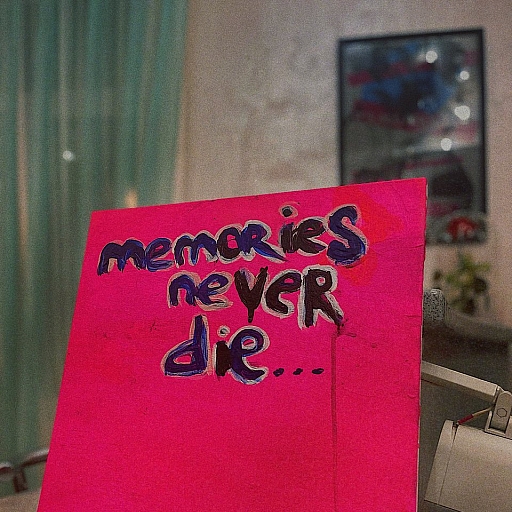 memoRies
neVeR
die...